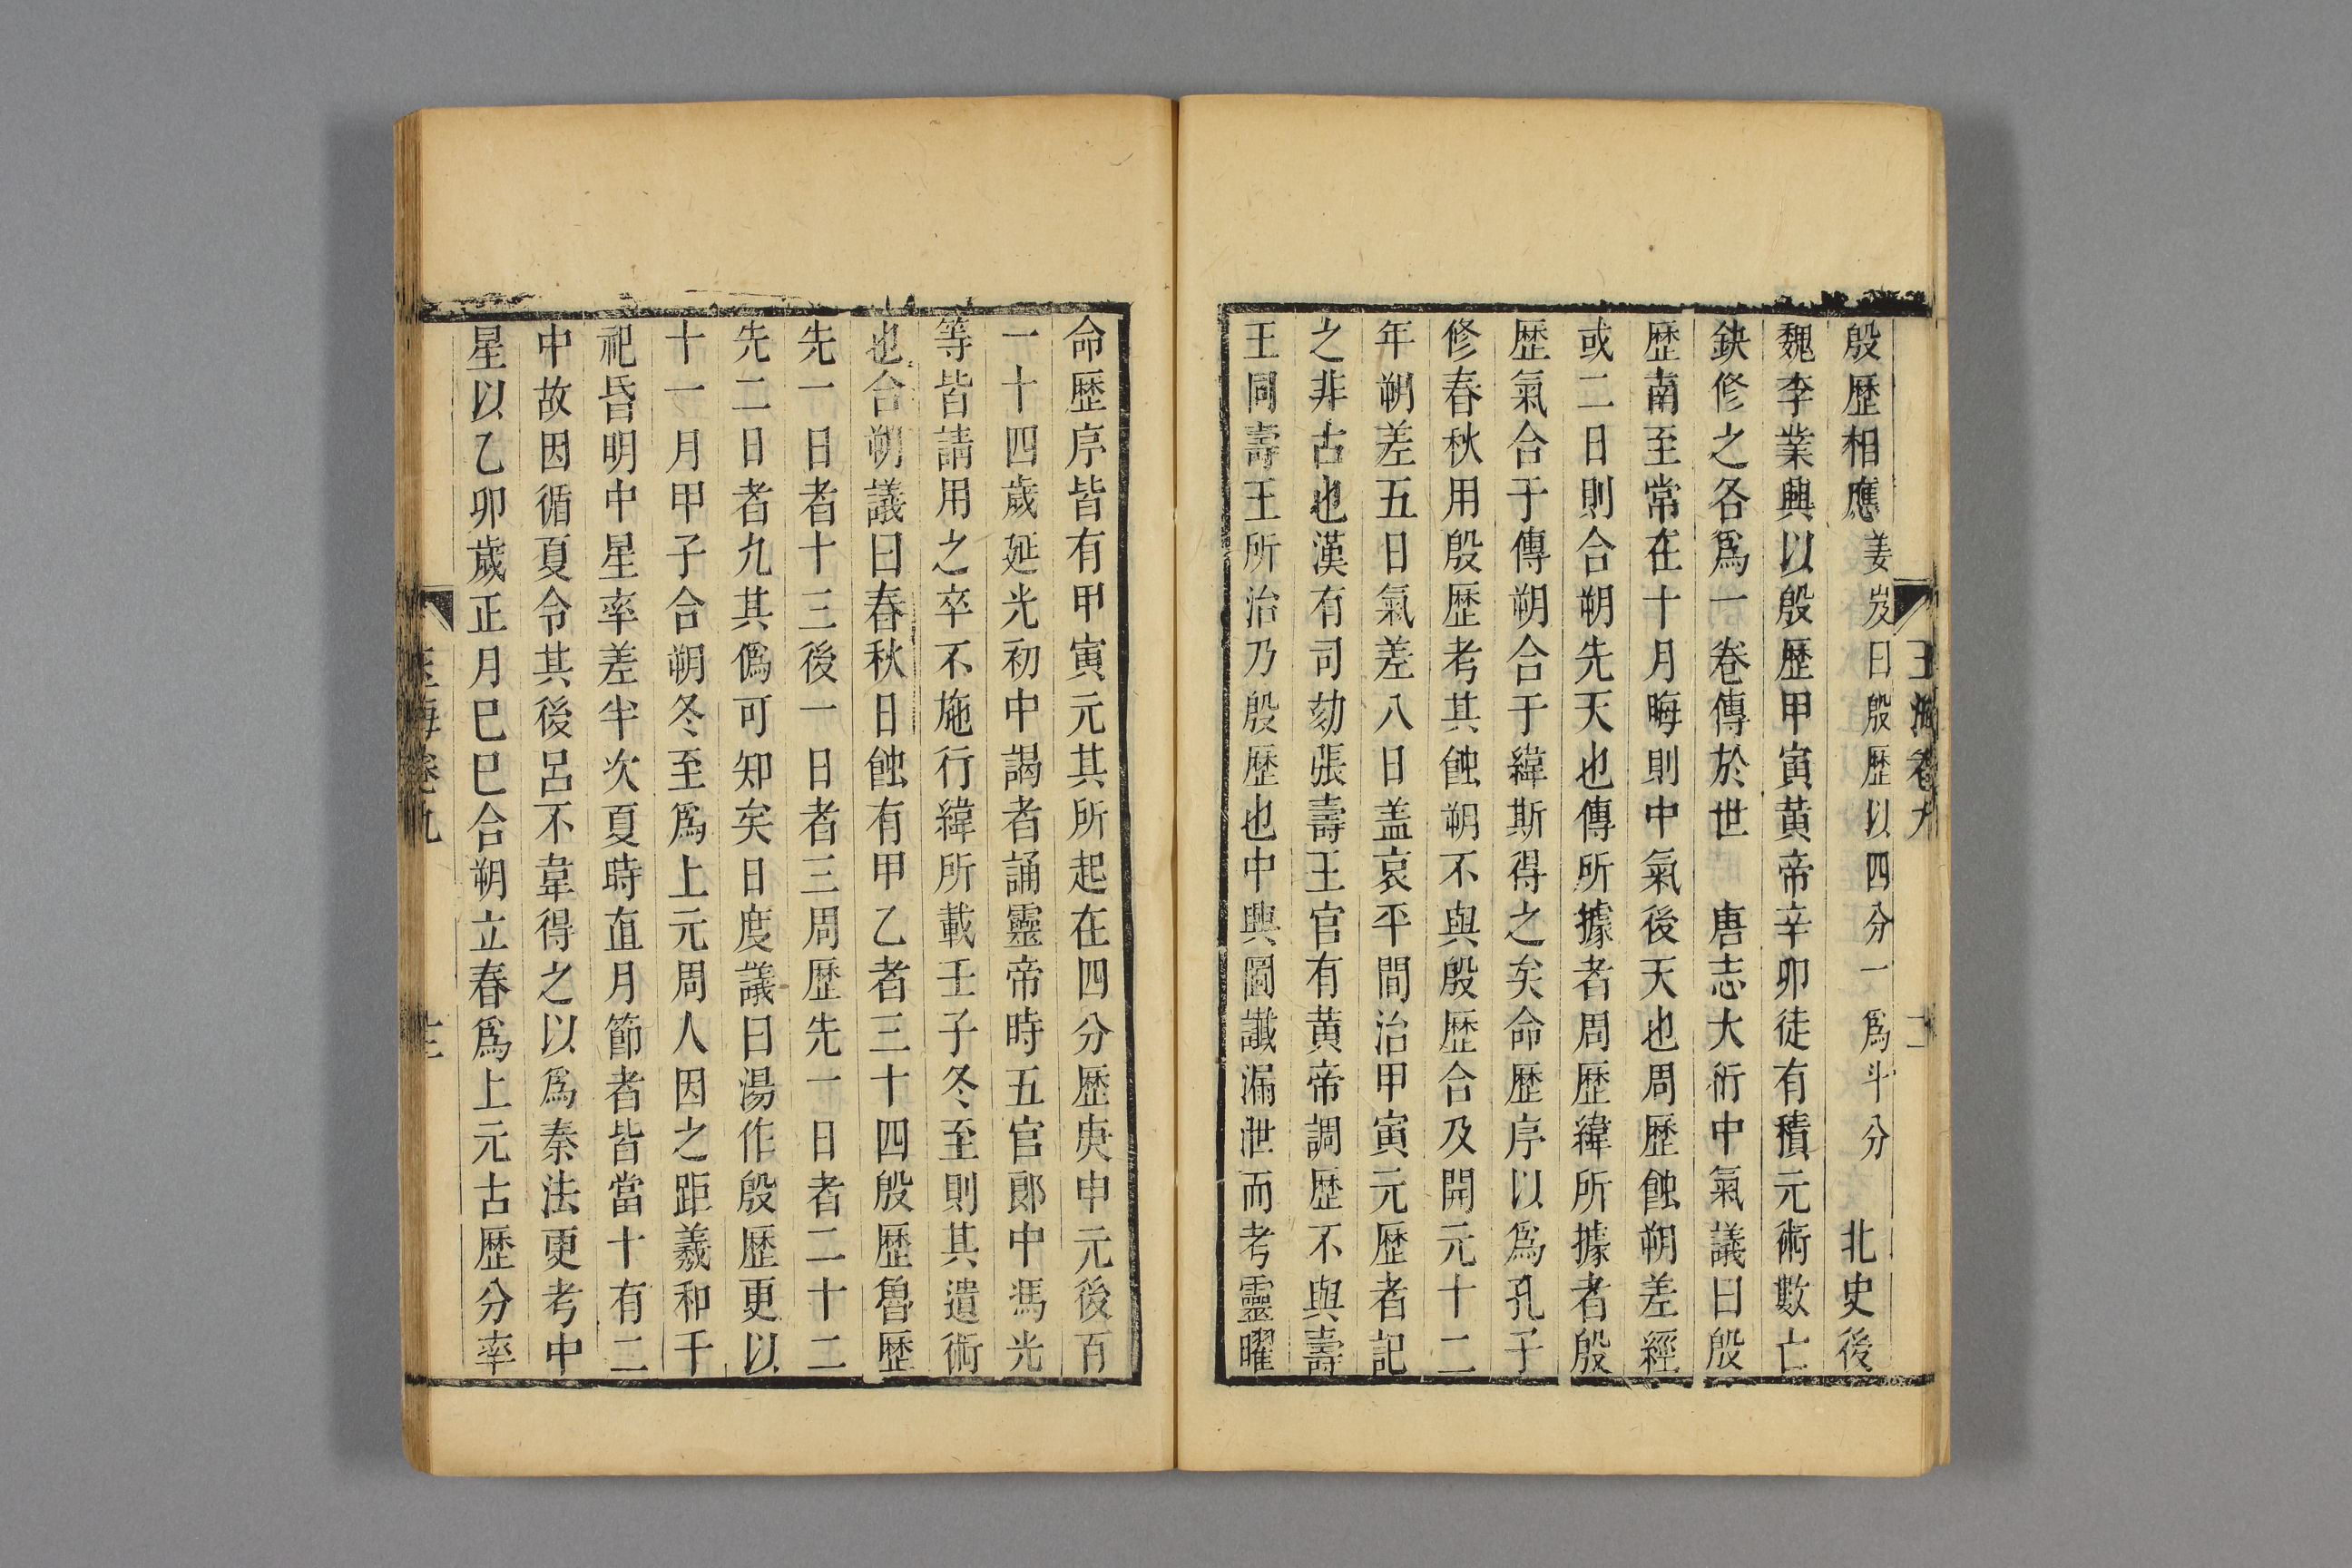 殷歷相應姜岌曰殷歷以四分一爲斗分　北史後
魏李業興以殷歷甲寅黃帝辛卯徒有積元術數亡
缺修之各爲一卷傳於世　唐志大衍中氣議曰殷
歷南至常在十月晦則中氣後天也周歷蝕朔差經
或二日則合朔先天也傳所據者周歷緯所據者殷
歷氣合于傳朔合于緯斯得之矣命歷序以爲孔子
修春秋用殷歷考其蝕朔不與殷歷合及開元十二
年朔差五日氣差八日盖哀平間治甲寅元歷者記
之非古也漢有司劾張壽王官有黃帝調歷不與壽
王同壽王所治乃殷歷也中興圖讖漏泄而考靈曜
命歷序皆有甲寅元其所起在四分歷庚申元後百
一十四歲延光初中謁者誦靈帝時五官郎中馮光
等皆請用之卒不施行緯所載壬子冬至則其遺術
也合朔議曰春秋日蝕有甲乙者三十四殷歷魯歷
先一日者十三後一日者三周歷先一日者二十二
先二日者九其僞可知矣日度議曰湯作殷歷更以
十一月甲子合朔冬至爲上元周人因之距羲和千
祀昏明中星率差半次夏時直月節者皆當十有二
中故因循夏令其後呂不韋得之以爲秦法更考中
星以乙卯歲正月巳巳合朔立春爲上元古歷分率
玉海卷九